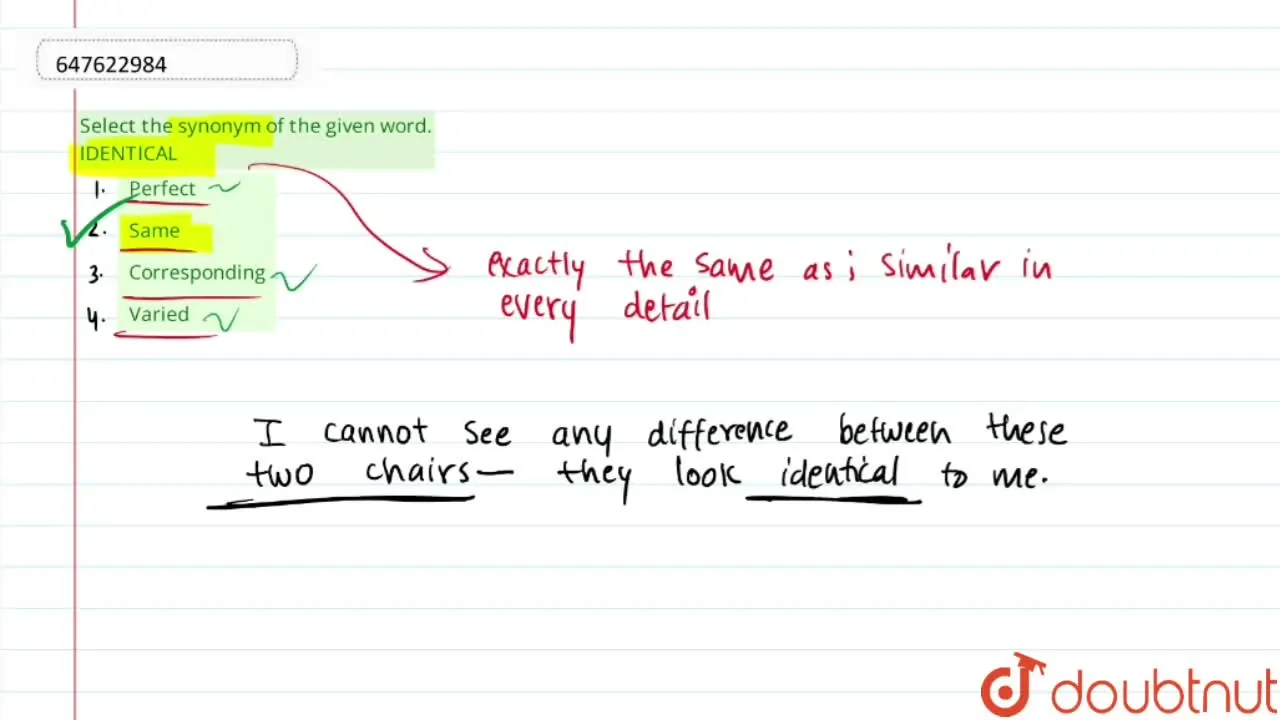 647622984
Select the synonym of the given word.
IDENTICAL
1. Perfect
2. Same
3. Corresponding
4. Varied
exactly the same as; similar in
every detail
I cannot see any difference between these
two chairs— they look identical to me.
doubtnut